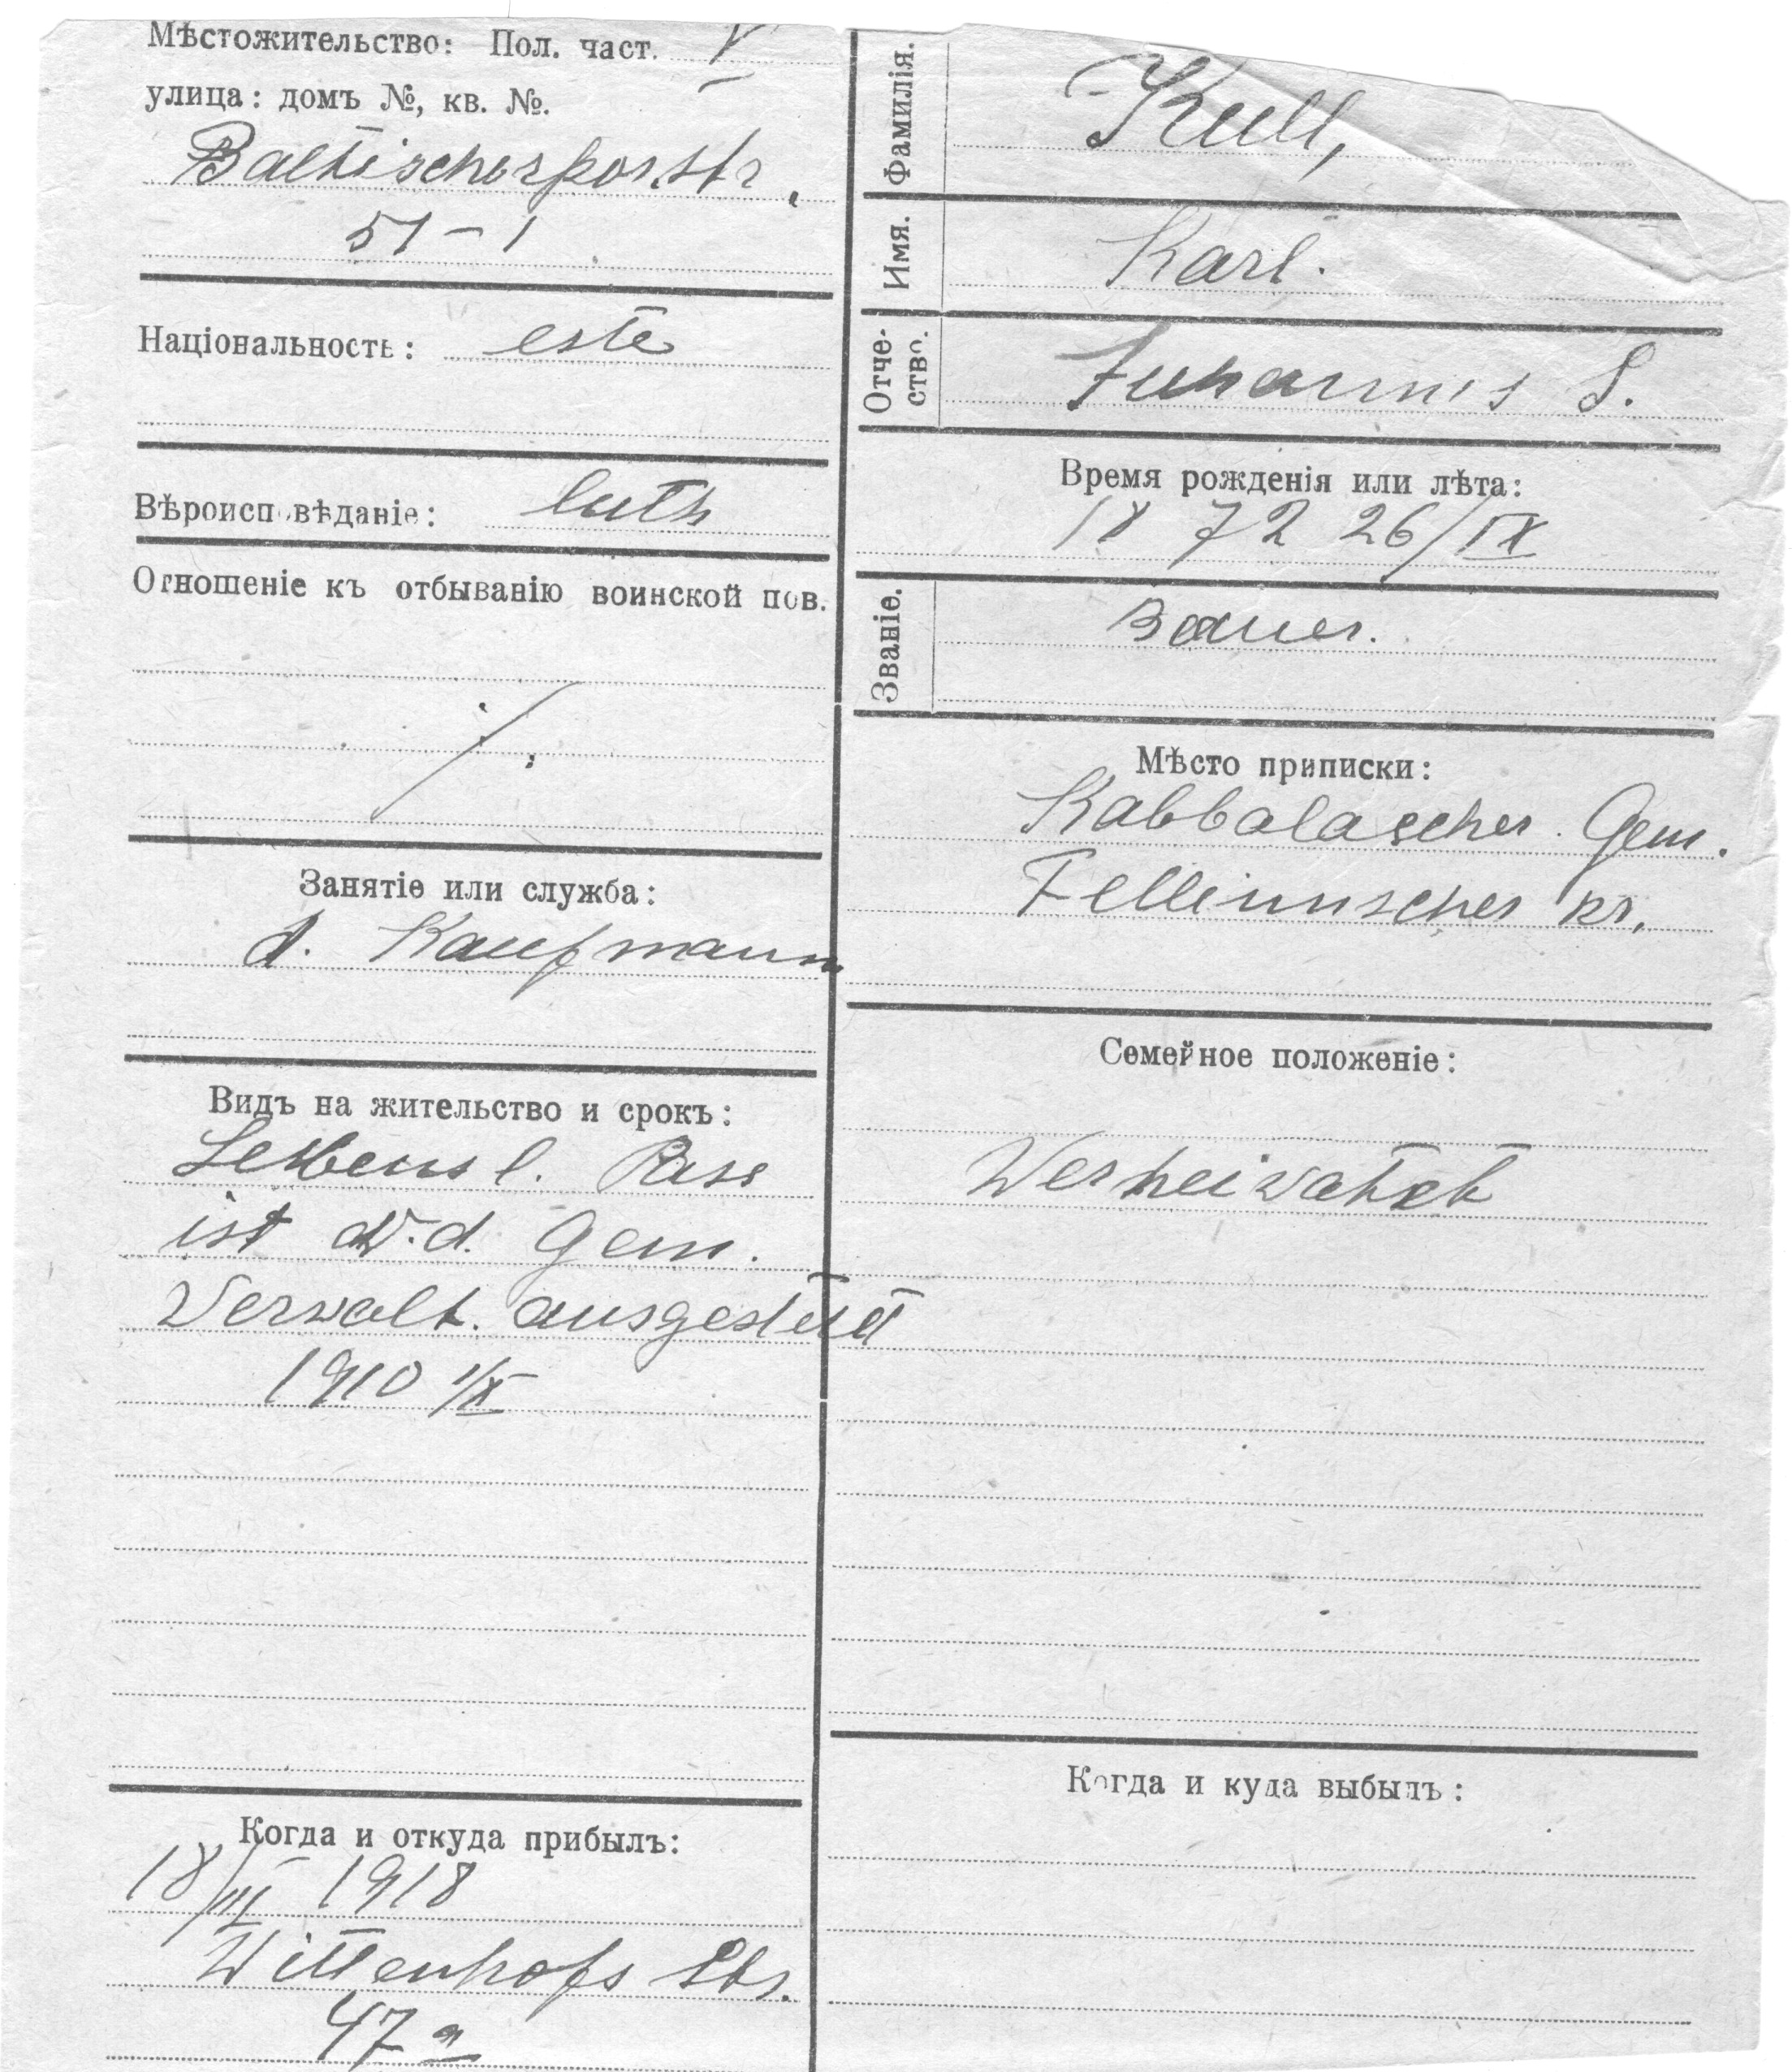 Мѣстожительство: Пол. част. V
улица: домъ №, кв. №.
Baltischerporstr.
51-1
Національность: este
Вѣроисповѣданіе: luth
Отношеніе къ отбыванію воинской пов.
Занятіе или служба:
d. Kaufmann
Видъ на жительство и срокъ:
Lebensl. Pass
ist v. d. Gem.
Verwalt. ausgestellt
1910 1/X
Когда и откуда прибылъ:
18/III 1918
Wittenhofs Str.
47a
Фамилія. Kull,
Имя. Karl.
Отче-
ство. Juhannis S.
Время рожденія или лѣта:
1872 26/IX
Званіе. Bauer.
Мѣсто приписки:
Kabbalascher Gem.
Fellinnscher Kr.
Семейное положеніе:
Verheiratet
Когда и куда выбылъ: